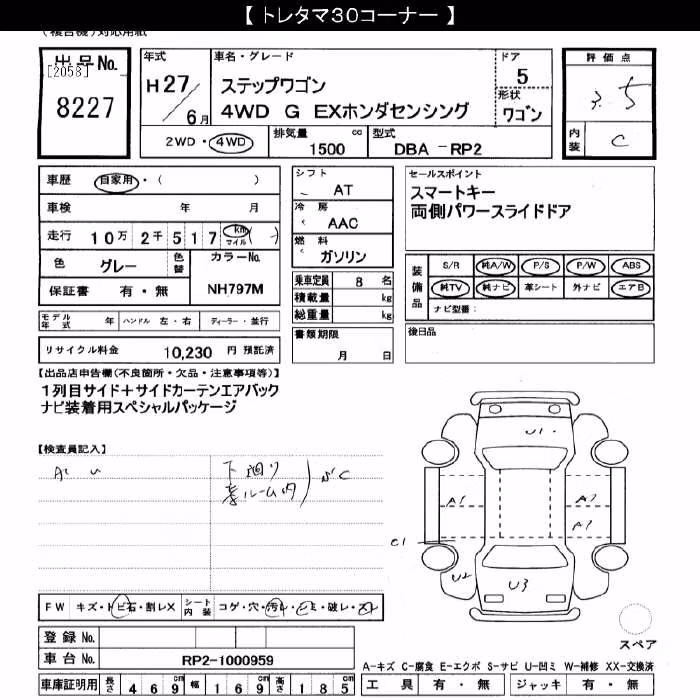 【 トレタマ３０コーナー 】
(複合機)対応用紙
出品No.
[2058]
8227
年式
H 27／6月
車名・グレード
ステップワゴン
4WD G EXホンダセンシング
ドア
5
形状
ワゴン
評価点
3.5
内装
C
2WD・4WD
排気量
1500 cc
型式
DBA -RP2
車歴 自家用・( )
車検 年 月
走行 10万2千517 km マイル ( )
色 グレー 色替
カラーNo.
NH797M
保証書 有・無
シフト
AT
冷房
AAC
燃料
ガソリン
乗車定員 8 名
積載量 kg
総重量 kg
セールスポイント
スマートキー
両側パワースライドドア
装備品
S/R 純A/W P/S P/W ABS
純TV 純ナビ 革シート 外ナビ エアB
ナビ型番:
モデル年式 年 ハンドル 左・右 ディーラー・並行
リサイクル料金 10,230 円 預託済
書類期限
月 日
後日品
【出品店申告欄(不良箇所・欠品・注意事項等)】
1列目サイド＋サイドカーテンエアバック
ナビ装着用スペシャルパッケージ
【検査員記入】
A U
下廻り
C
U1
A1
A1
C1
U2
U3
FW キズ・トビ石・割レX シート内装 コゲ・穴・汚レ・シミ・破レ・スレ
登録No.
車台No. RP2-1000959
車庫証明用 長さ 469cm 幅 169cm 高さ 185cm
スペア
A-キズ C-腐食 E-エクボ S-サビ U-凹ミ W-補修 XX-交換済
工具 有・無 ジャッキ 有・無